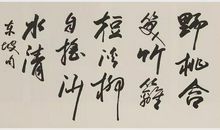 野桃含
笑竹籬
短溪柳
自搖沙
水清
東坡句